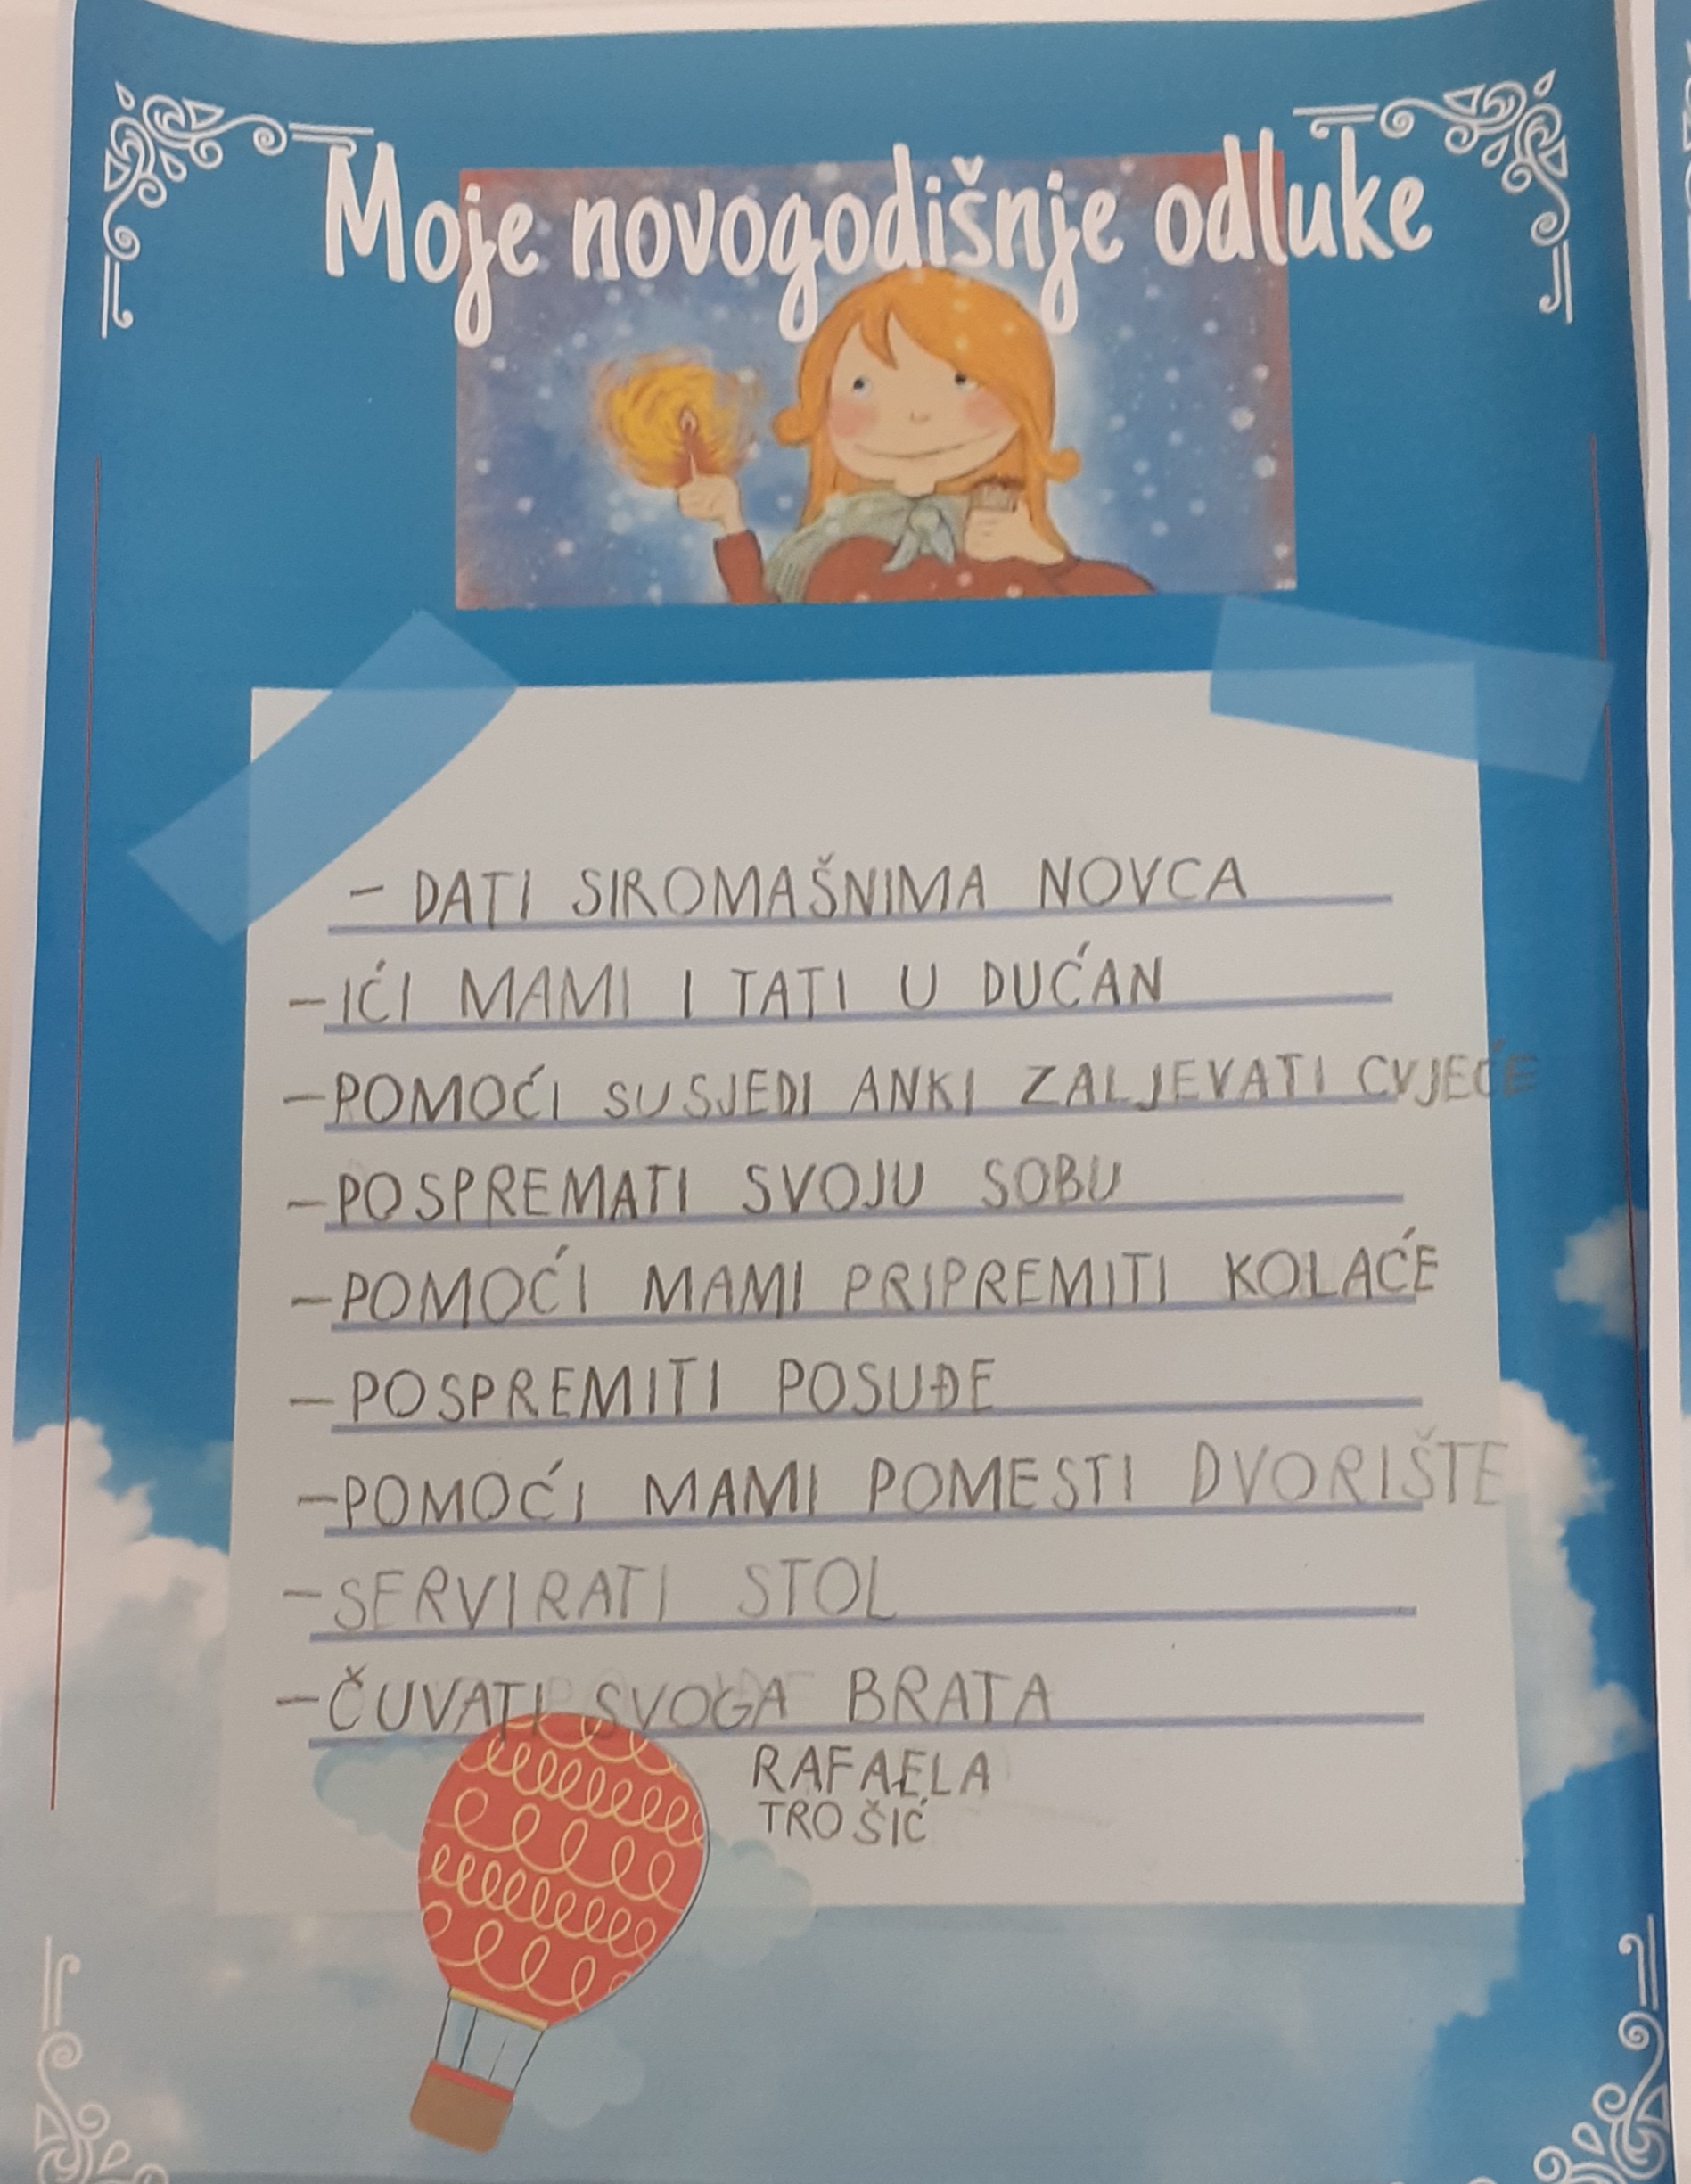 Moje novogodišnje odluke
- DATI SIROMAŠNIMA NOVCA
- IĆI MAMI I TATI U DUĆAN
- POMOĆI SUSJEDI ANKI ZALJEVATI CVJEĆE
- POSPREMATI SVOJU SOBU
- POMOĆI MAMI PRIPREMITI KOLAĆE
- POSPREMITI POSUĐE
- POMOĆI MAMI POMESTI DVORIŠTE
- SERVIRATI STOL
- ČUVATI SVOGA BRATA
RAFAELA
TROŠIĆ